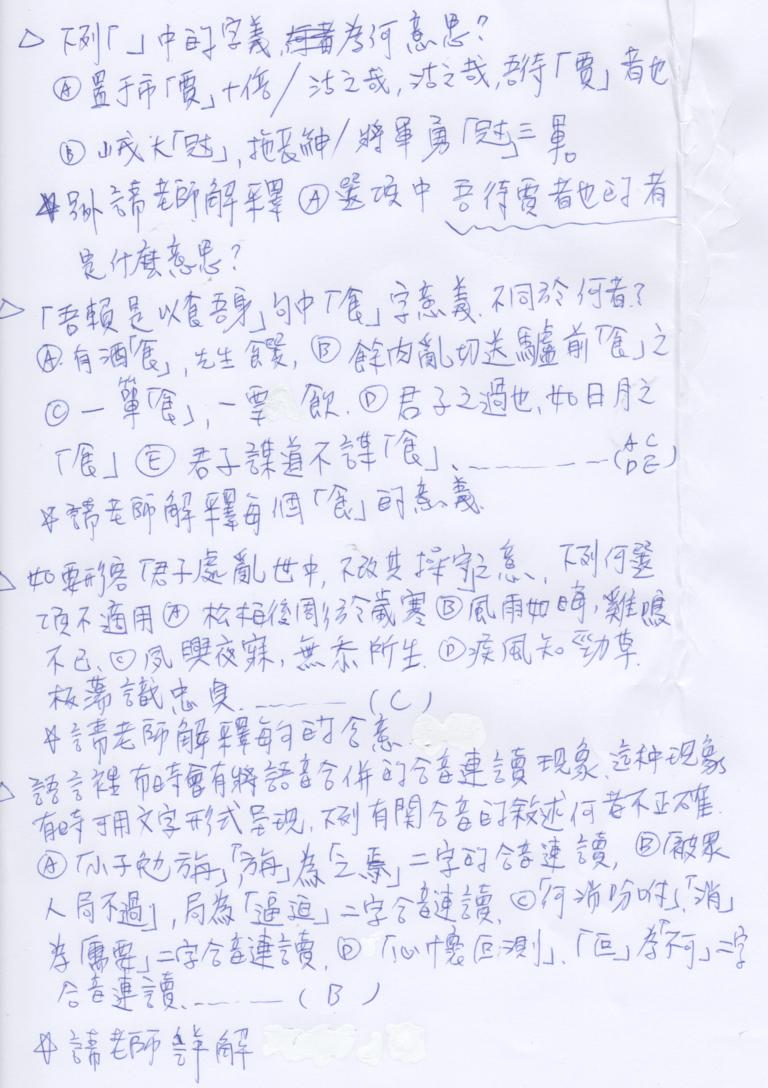 △ 下列「」中的字義,為何意思?
Ⓐ 置于市「賈」十倍/沽之哉,沽之哉,吾待「賈」者也
Ⓑ 峨大「冠」,拖長紳/將軍勇「冠」三軍。
另外請老師解釋Ⓐ選項中 吾待賈者也的者
是什麼意思?
△ 「吾賴是以食吾身」句中「食」字意義.不同於何者?
Ⓐ.有酒「食」,先生饌,Ⓑ 餘肉亂切送驢前「食」之
Ⓒ 一簞「食」,一瓢 飲.Ⓓ 君子之過也,如日月之
「食」Ⓔ 君子謀道不謀「食」、————(ACDE)
*請老師解釋每個「食」的意義.
△ 如要形容「君子處亂世中,不改其操守」之意,下列何選
項不適用Ⓐ 松柏後彫於歲寒Ⓑ風雨如晦,雞鳴
不已.Ⓒ夙興夜寐,無忝所生.Ⓓ疾風知勁草.
板蕩識忠臣.————(C)
*請老師解釋每句的含意.
△ 語言裡有時會有將語音合併的合音連讀現象.這种現象
有時可用文字形式呈現,下列有關合音的敘述何者不正確.
Ⓐ「小子勉旃」,「旃」為「之焉」二字的合音連讀,Ⓑ「被眾
人局不過」,局為「逼迫」二字合音連讀.Ⓒ「何消吩咐」,「消」
為「需要」二字合音連讀.Ⓓ「心懷叵測」、「叵」為「不可」二字
合音連讀.————(B)
*請老師詳解